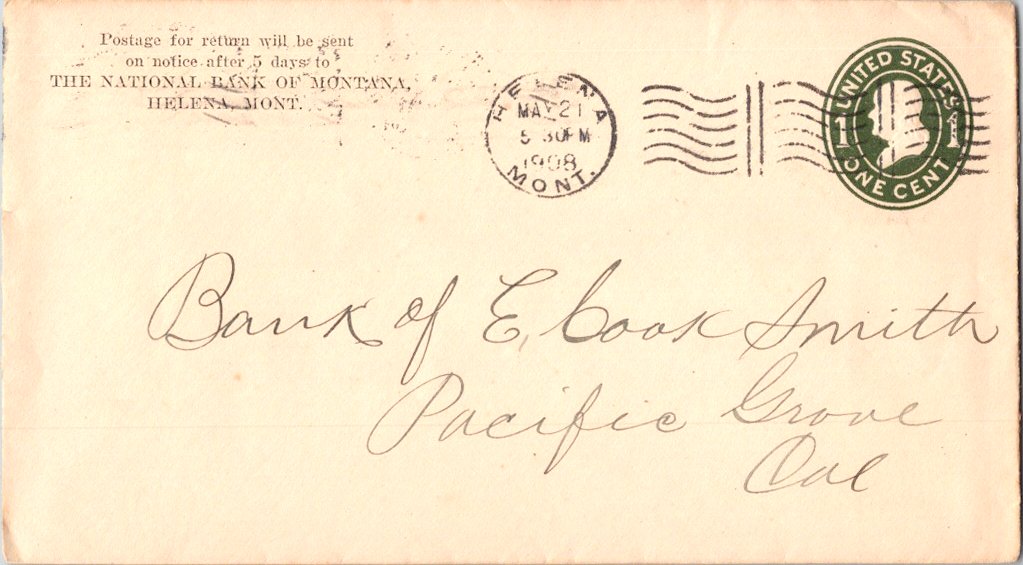 Postage for return will be sent
on notice after 5 days to
THE NATIONAL BANK OF MONTANA,
HELENA, MONT.
HELENA
MAY 21
5 30 PM
1908
MONT.
UNITED STATES
1 1
ONE CENT
Bank of E. Cook Smith
Pacific Grove
Cal